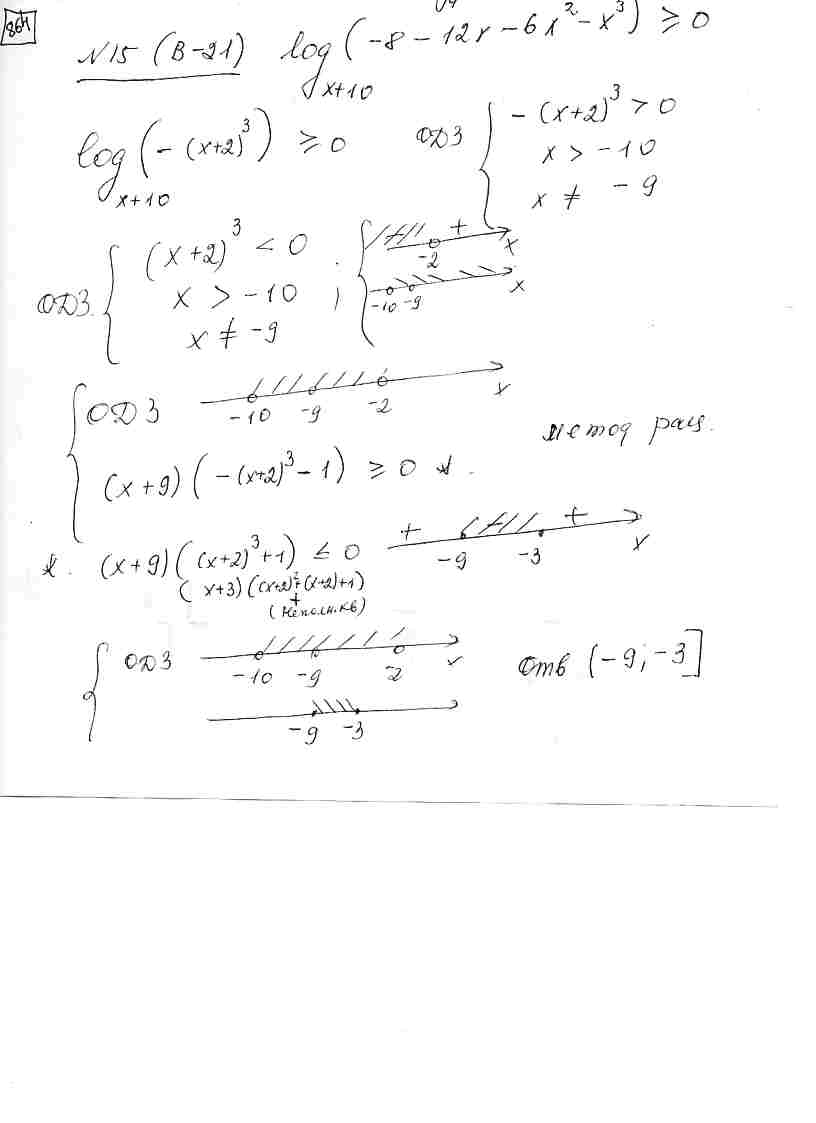 864
N15 (В-21) log_{x+10} (-8 - 12x - 6x² - x³) ≥ 0
log_{x+10} (-(x+2)³) ≥ 0 ОДЗ { -(x+2)³ > 0
x > -10
x ≠ -9
ОДЗ { (x+2)³ < 0 ; + -2 x
x > -10 -10 -9 x
x ≠ -9
{ ОДЗ -10 -9 -2 x
(x+9)(-(x+2)³ - 1) ≥ 0 * . метод рац.
*. (x+9)((x+2)³+1) ≤ 0 + -9 -3 + x
(x+3)((x+2)²+(x+2)+1)
+
(неполн.кв)
{ ОДЗ -10 -9 -2 x Отв (-9; -3]
-9 -3